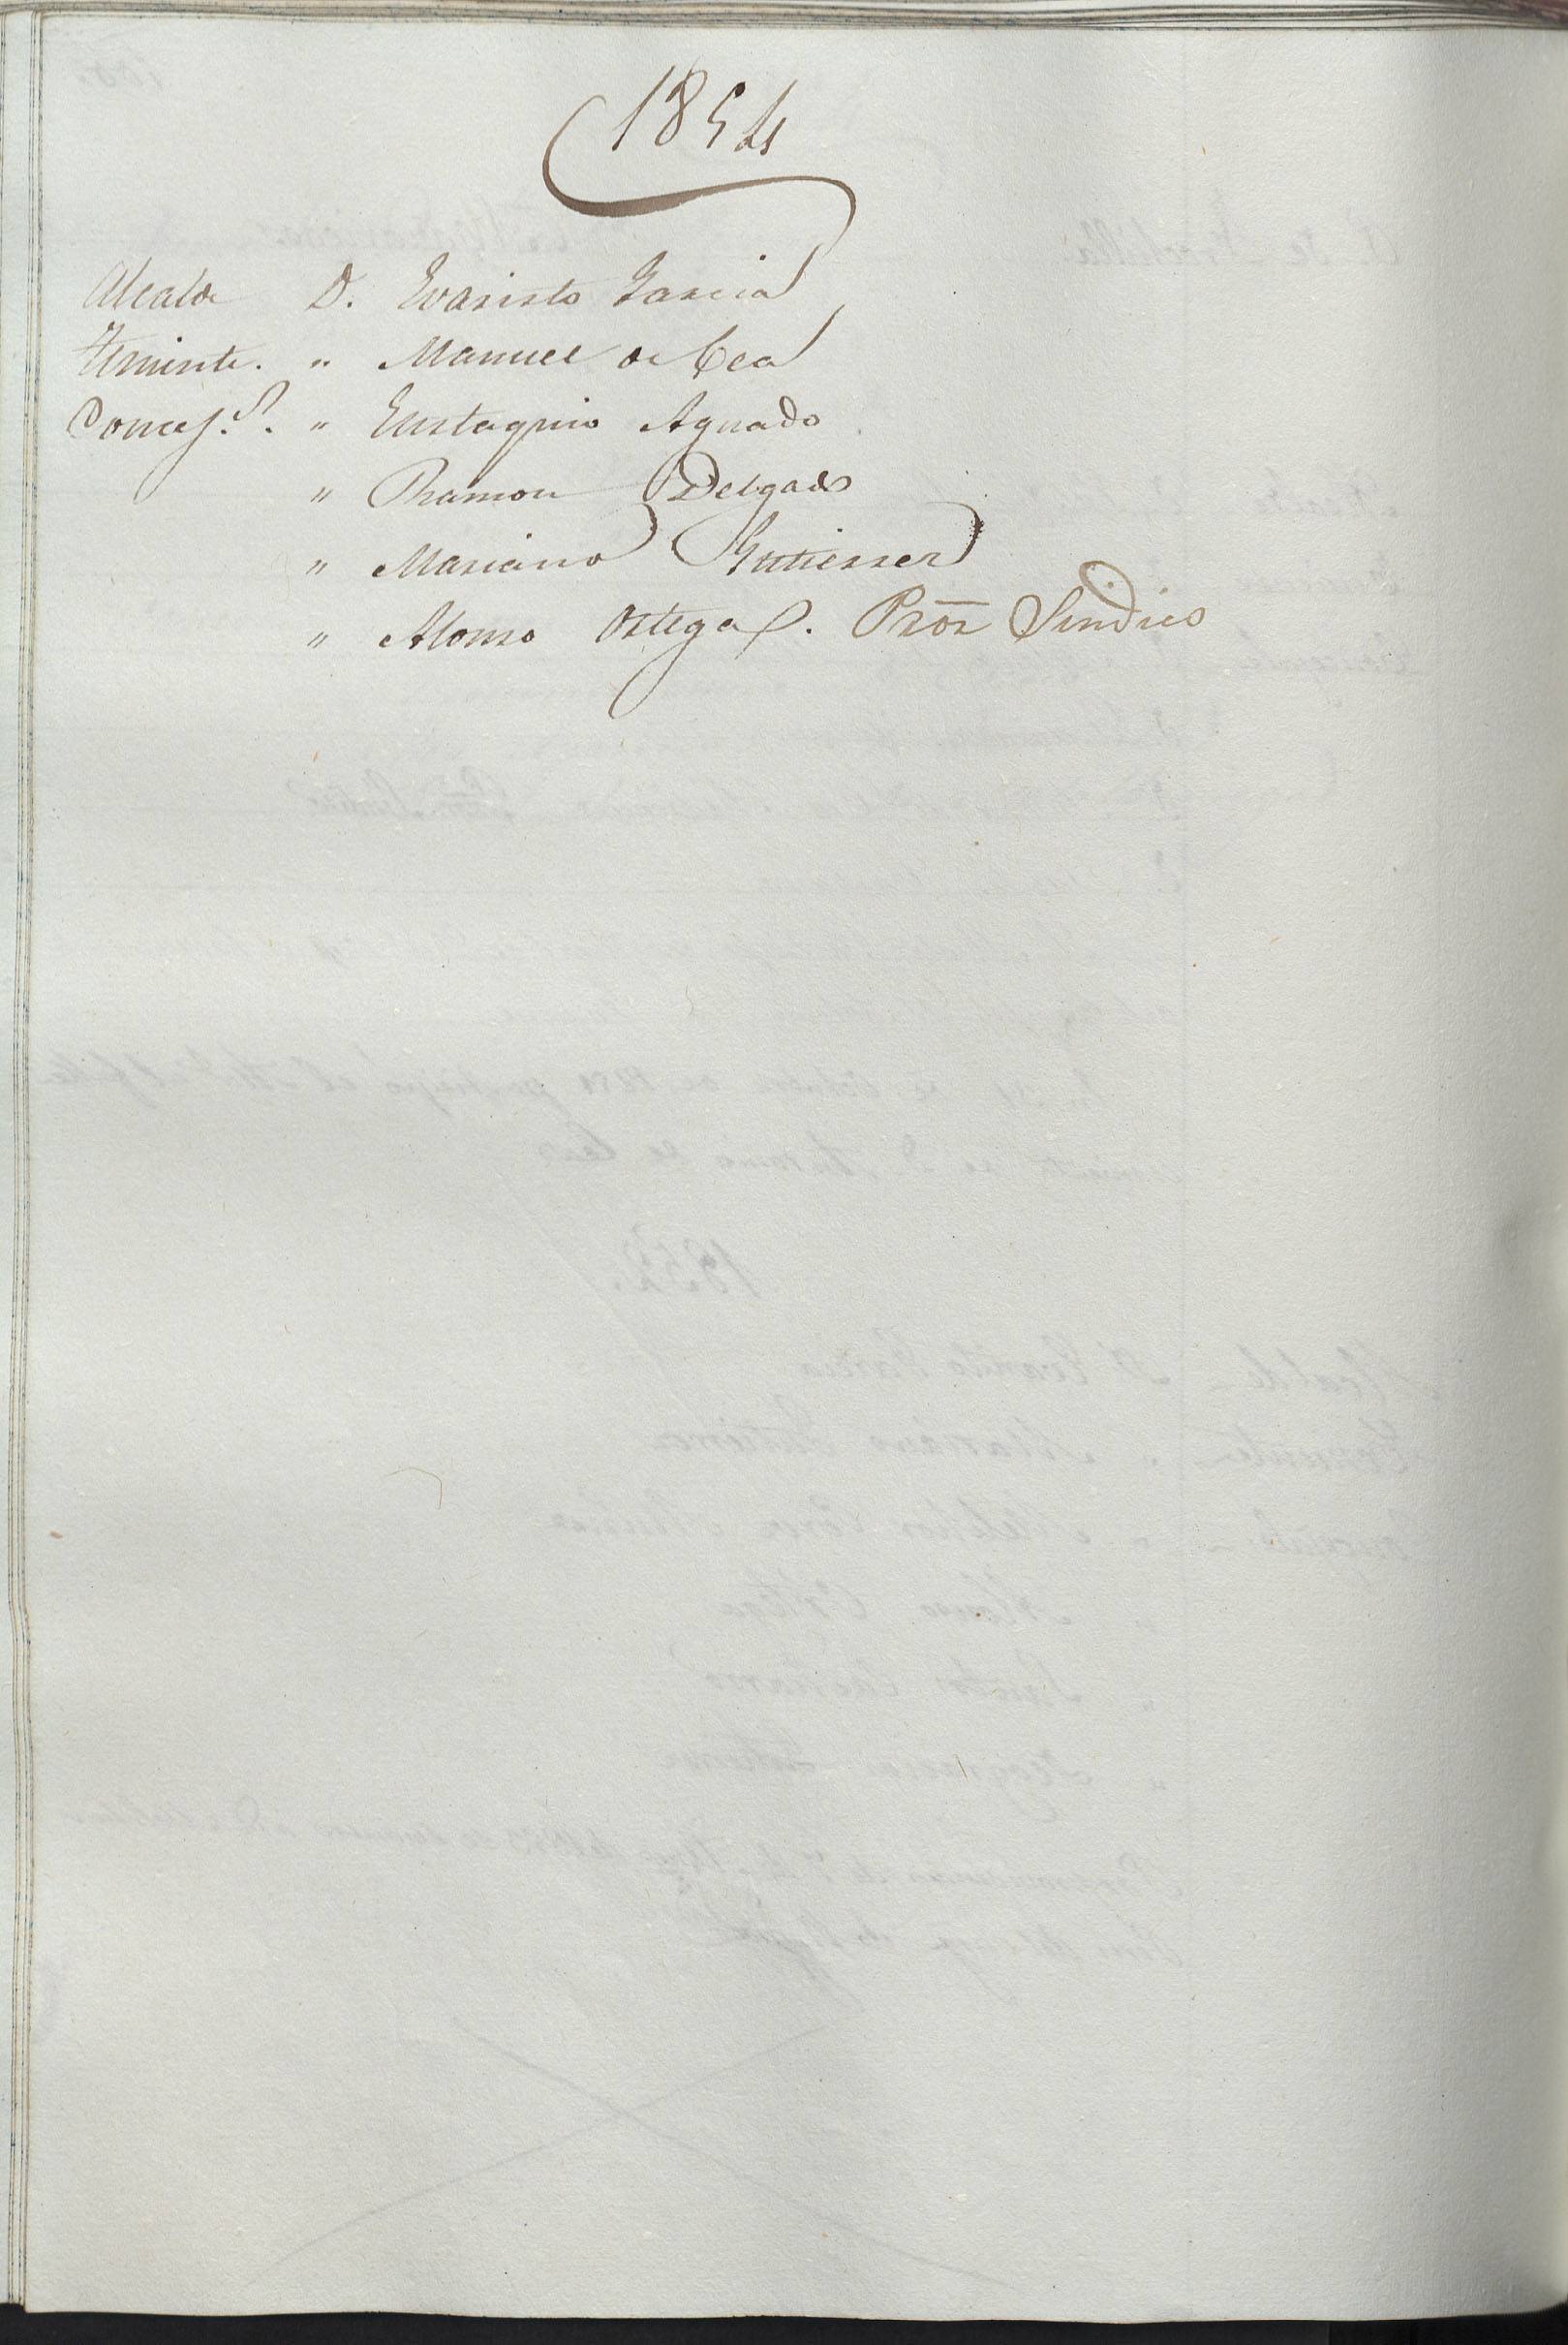 1854
Alcalde D. Evaristo Garcia
Teniente. " Manuel de Cea
Concej.s. " Eustaquio Aguado
" Ramon Delgado
" Mariano Gutierrez
" Alonso Ortega. Pror Sindico